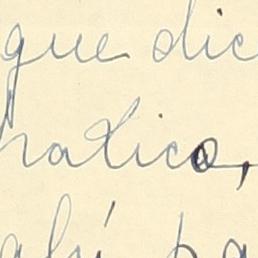 que dic
pratico,
ahí pa